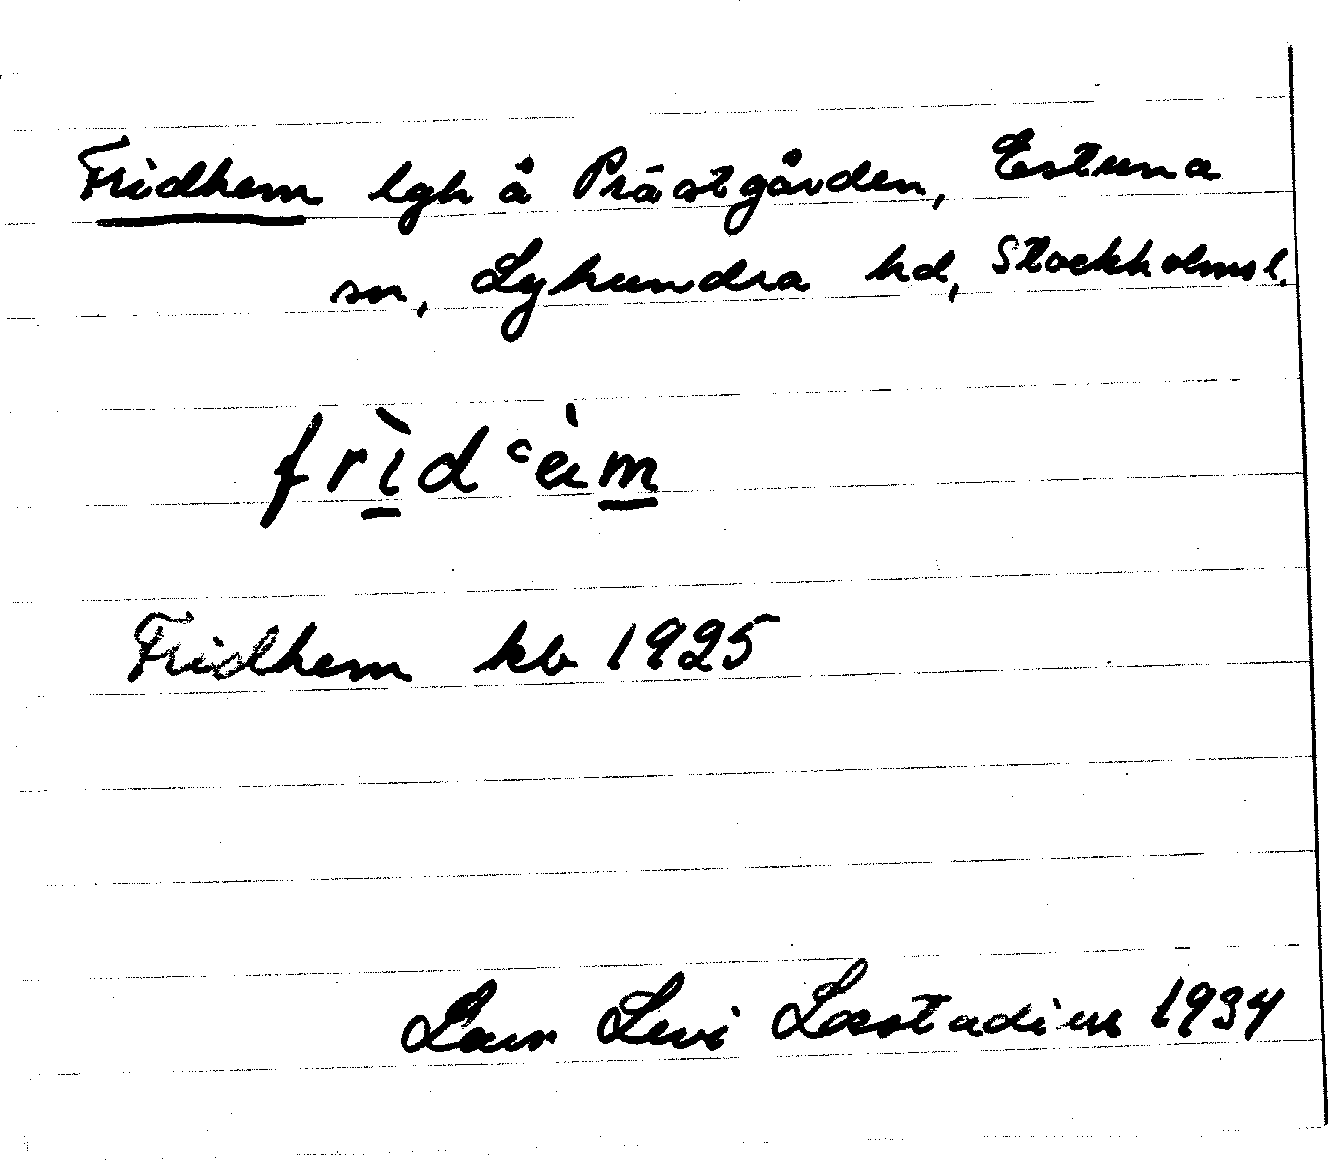 Fridhem lgh å Prästgården, Estuna
sn, Lyhundra hd, Stockholms l.
frìd ͑èm
Fridhem kb 1925
Lars Levi Læstadius 1934